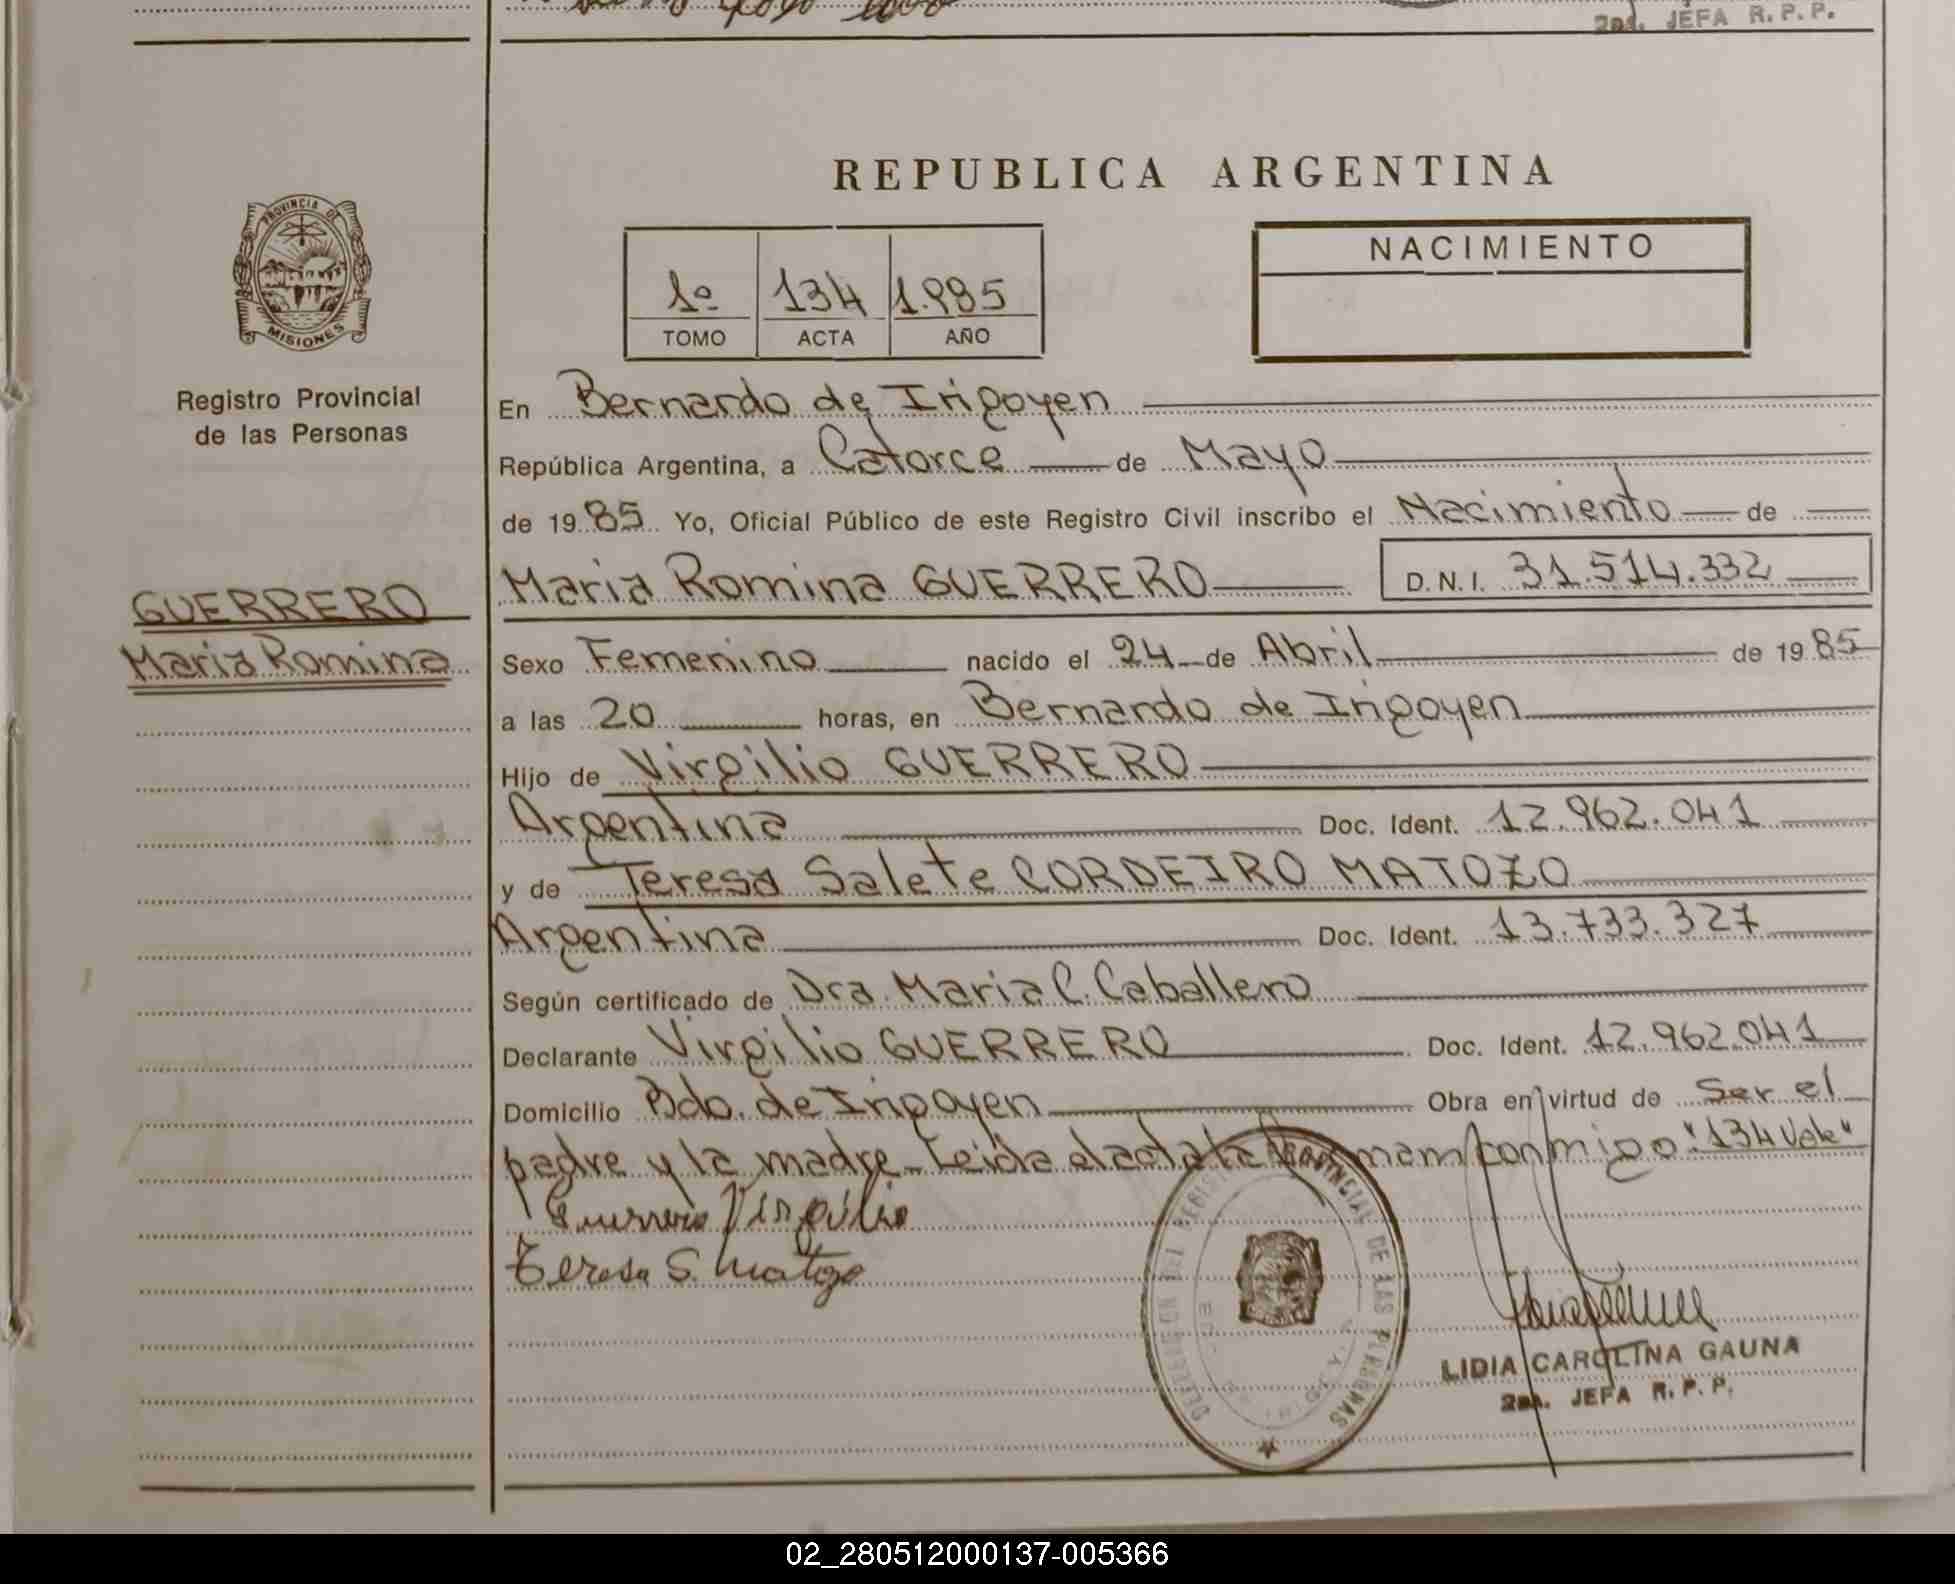 2da. JEFA R. P. P.
REPUBLICA ARGENTINA
PROVINCIA DE
MISIONES
Registro Provincial
de las Personas
1º 134 1.985
TOMO ACTA AÑO
NACIMIENTO
En Bernardo de Irigoyen
República Argentina, a Catorce de Mayo
de 1985 Yo, Oficial Público de este Registro Civil inscribo el Nacimiento de
Maria Romina GUERRERO D.N.I. 31.514.332
GUERRERO
Maria Romina
Sexo Femenino nacido el 24 de Abril de 1985
a las 20 horas, en Bernardo de Irigoyen
Hijo de Virgilio GUERRERO
Argentina Doc. Ident. 12.962.041
y de Teresa Salete CORDEIRO MATOZO
Argentina Doc. Ident. 13.733.327
Según certificado de Dra. Maria C. Caballero
Declarante Virgilio GUERRERO Doc. Ident. 12.962.041
Domicilio Bdo. de Irigoyen Obra en virtud de Ser el
padre y la madre Leida el acta la firmam conmigo "134 Vale"
Guerrero Virgilio
Teresa S. Matozo
PROVINCIAL DE LAS PERSONAS
LIDIA CAROLINA GAUNA
2da. JEFA R. P. P.
02_280512000137-005366